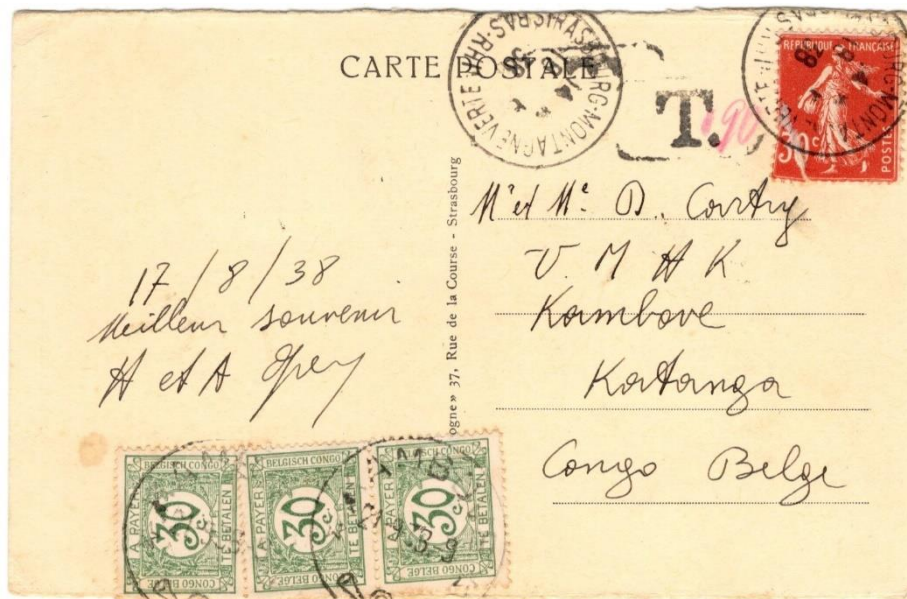 CARTE POSTALE
STRASBOURG-MONTAGNE VERTE
BAS-RHIN
T.
90
RÉPUBLIQUE FRANÇAISE
30 c
POSTES
ogne» 37, Rue de la Course - Strasbourg
Mr et Me D. Coutry
U M H K
Kambove
Katanga
Congo Belge
17/8/38
Meilleur souvenir
H et A
BELGISCH CONGO
A PAYER
30 c
TE BETALEN
CONGO BELGE
BELGISCH CONGO
A PAYER
30 c
TE BETALEN
CONGO BELGE
BELGISCH CONGO
A PAYER
30 c
TE BETALEN
CONGO BELGE